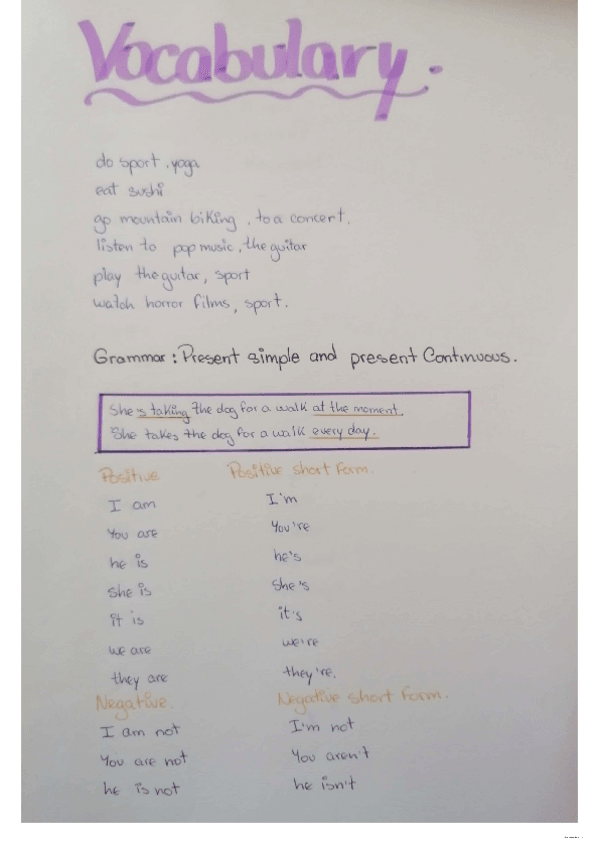 Vocabulary.
do sport, yoga
eat sushi
go mountain biking, to a concert.
listen to pop music, the guitar
play the guitar, sport
watch horror films, sport.
Grammar: Present simple and present Continuous.
She's taking the dog for a walk at the moment.
She takes the dog for a walk every day.
Positive Positive short form.
I am I'm
You are You're
he is he's
She is She's
it is it's
we are we're
they are they're.
Negative. Negative short form.
I am not I'm not
You are not You aren't
he is not he isn't